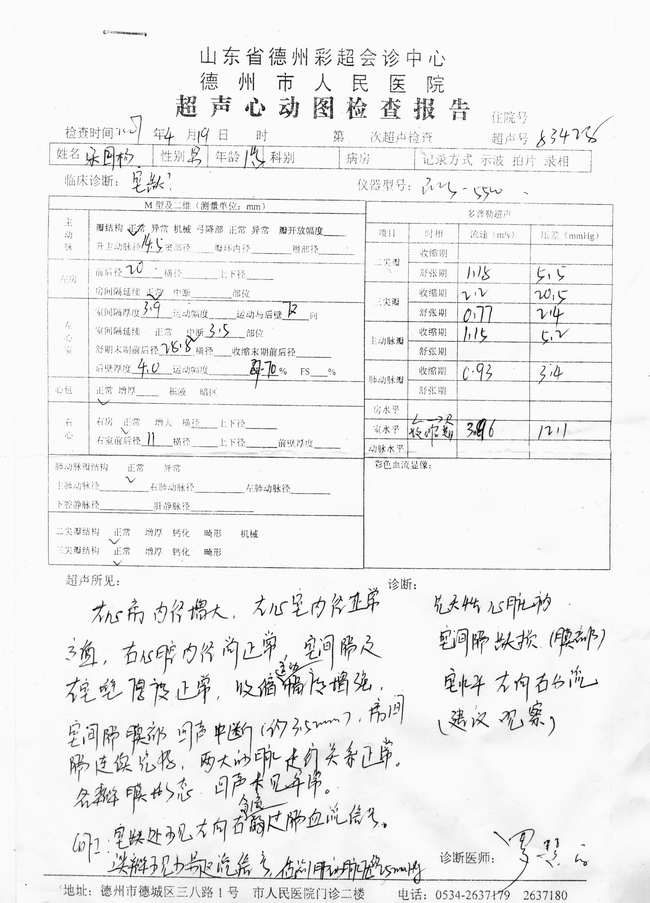 山东省德州彩超会诊中心
德州市人民医院
超声心动图检查报告
住院号
检查时间 年 4 月 19 日 时 第 次超声检查 超声号 834256
姓名 性别 男 年龄 科别 病房 记录方式 示波 拍片 录相
临床诊断: 室缺? 仪器型号:
M 型及二维 (测量单位: mm)
主动脉
瓣结构 正常 异常 机械 弓降部 正常 异常 瓣开放幅度
升主动脉径 14.5 窦部径 瓣环内径 嵴部径
左房
前后径 20 横径 上下径
房间隔延续 正常 中断 部位
左心室
室间隔厚度 3.9 运动幅度 运动与后壁 向
室间隔延续 正常 中断 3.5 部位
舒期末期前后径 28.8 横径 收缩末期前后径
后壁厚度 4.0 运动幅度 70% FS %
心包 正常 增厚 积液 暗区
右心
右房 正常 增大 横径 上下径
右室前后径 11 横径 上下径 前壁厚度
肺动脉瓣结构 正常 异常
主肺动脉径 右肺动脉径 左肺动脉径
下腔静脉径 肝静脉径
二尖瓣结构 正常 增厚 钙化 畸形 机械
三尖瓣结构 正常 增厚 钙化 畸形
多普勒超声
项目 时相 流速 (m/s) 压差 (mmHg)
二尖瓣 收缩期
舒张期 1.18 5.5
三尖瓣 收缩期 2.2 20.5
舒张期 0.77 2.4
主动脉瓣 收缩期 1.15 5.2
舒张期
肺动脉瓣 收缩期 0.93 3.4
舒张期
房水平
室水平 L→R 收缩期
动脉水平
彩色血流显像:
超声所见:
左心房内径增大, 左心室内径正常
高值, 右心腔内径尚正常, 室间隔及
左室壁厚度正常, 收缩运动幅度增强,
室间隔膜部回声中断(约3.5mm), 房间
隔连续完整, 两大动脉走行关系正常。
各瓣膜形态回声未见异常。
室缺处可见左向右高速过隔血流信号。
诊断:
先天性心脏病
室间隔缺损 (膜部)
室水平左向右分流
(建议观察)
诊断医师:
地址: 德州市德城区三八路 1 号 市人民医院门诊二楼 电话: 0534-2637179 2637180